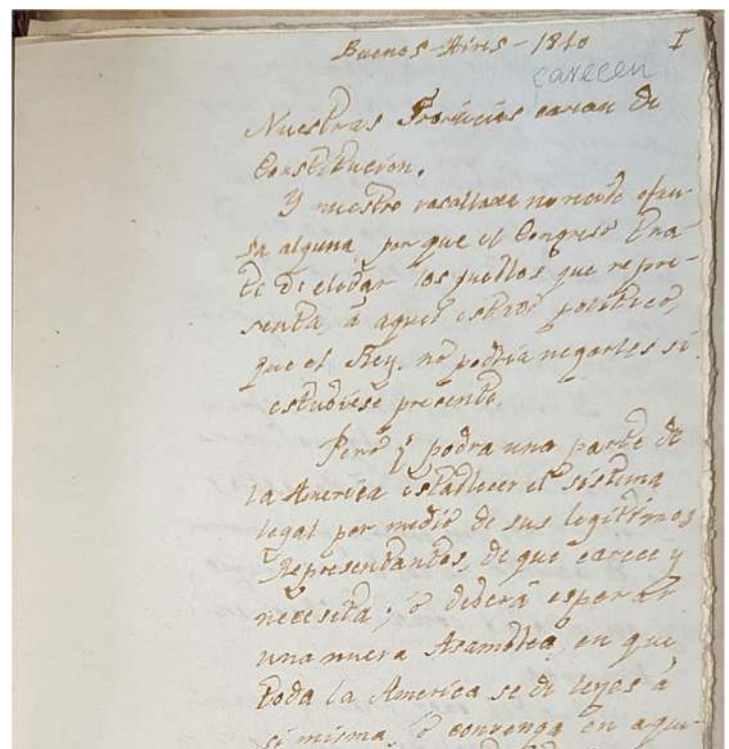 Buenos-Aires-1810 I
carecen
Nuestras Provincias carecen de
Constitucion.
Y nuestro vasallaxe no recibe ofen-
sa alguna por que el Congreso tra-
te de elevar los pueblos que repre-
senta, á aquel estado politico,
que el Rey no podria negarles si
estubiese presente.
Pero ¿podra una parte de
la America establecer el sistema
legal por medio de sus legitimos
Representantes, de que carece y
necesita; ó deberá esperar
una nueva Asamblea, en que
toda la America se dé leyes á
si misma, ó convenga en aque-